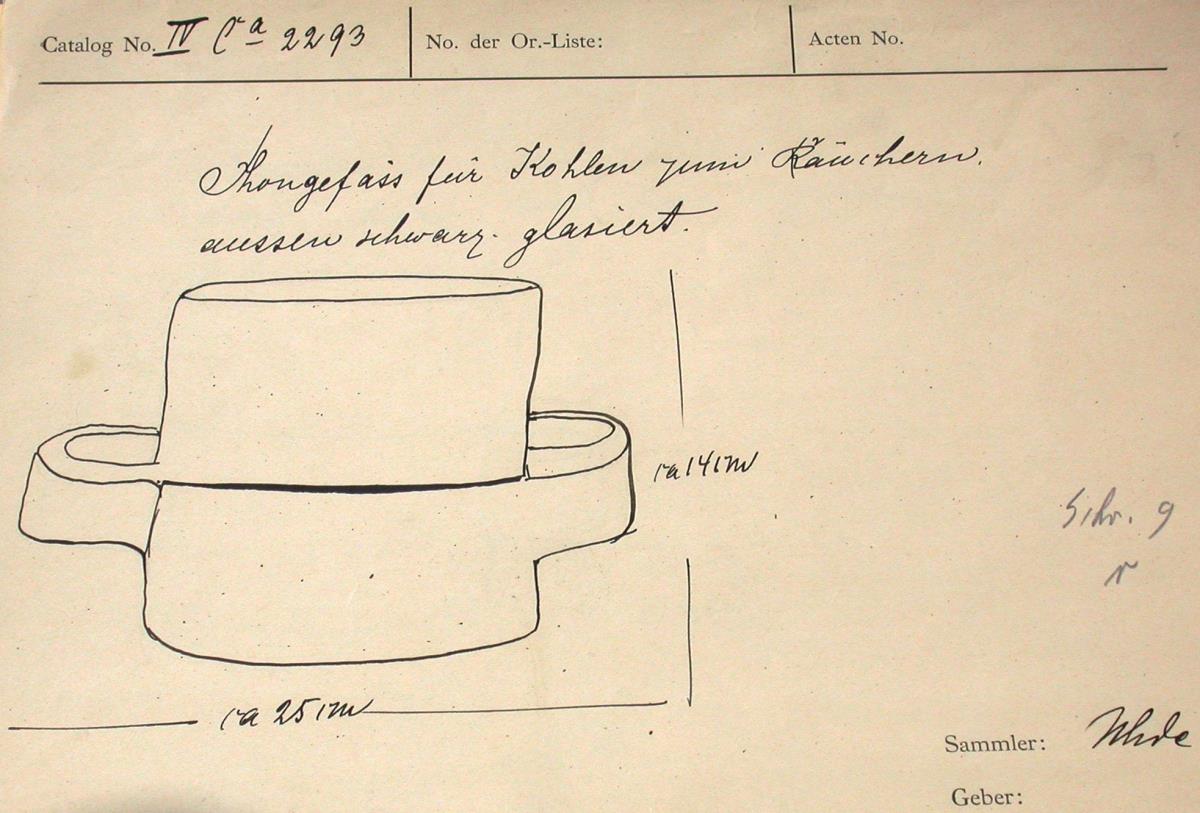 Catalog No. IV Ca 2293
No. der Or.-Liste:
Acten No.
Thongefäss für Kohlen zum Räuchern.
aussen schwarz glasiert.
ca 14 cm
Schr. 9
r
ca 25 cm
Sammler: Uhde
Geber: